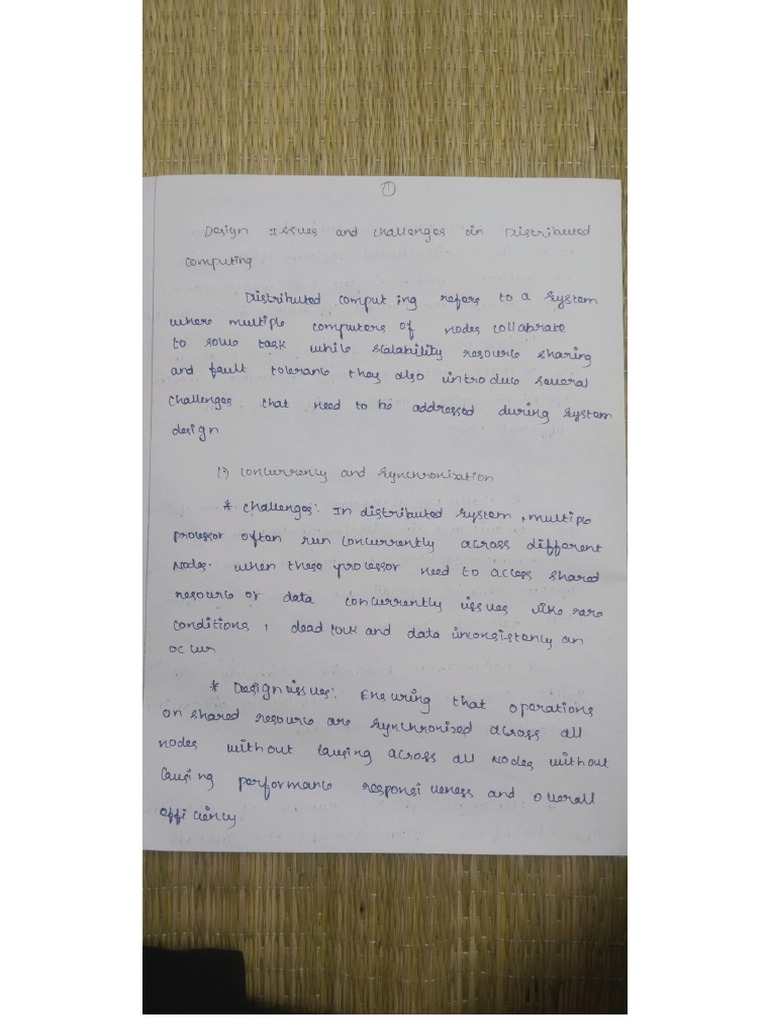 1
Design Issues and challenges in Distributed
computing
Distributed comput ing refers to a system
where multiple computers of nodes collabrate
to solve task while scalability resource sharing
and fault tolerance they also introduce several
challenges that need to be addressed during system
design
1) Concurrency and synchronization
* challenges: In distributed system, multiple
processor often run concurrently across different
nodes. when these processor need to access shared
resource or data concurrently issues like rare
conditions, dead lock and data inconsistency can
occur
* Design issues: Ensuring that operations
on shared resource are synchronized across all
nodes without causing across all nodes without
causing performance responsiveness and overall
efficiency